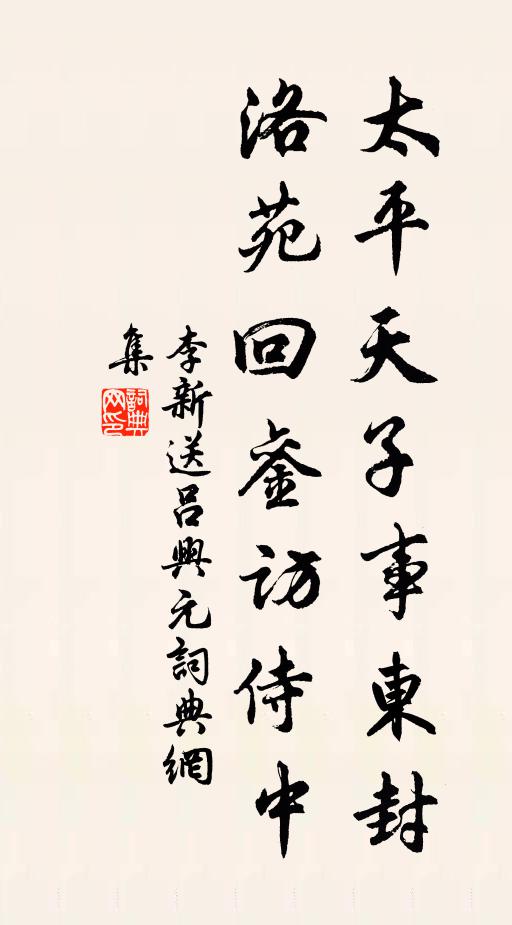 太平天子事東封
洛苑回鑾訪侍中
李新送呂興元詞典網
集
詞典
网印